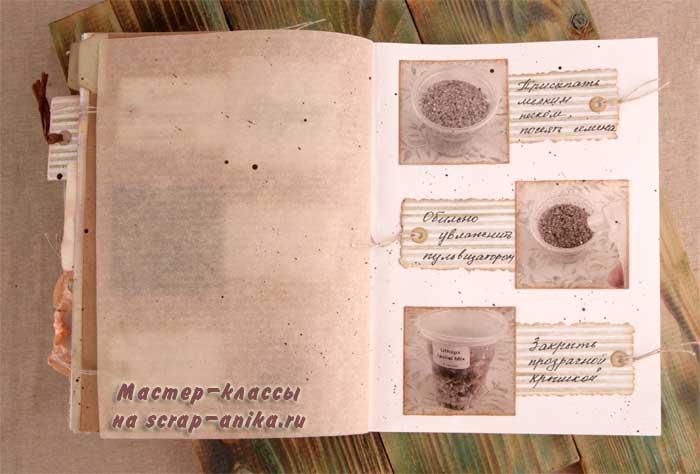 Присыпать
мелким
песком,
посеять семена
Обильно
увлажнить
пульвизатором
Lithops
Mix
Закрыть
прозрачной
крышкой
Мастер-классы
на scrap-anika.ru